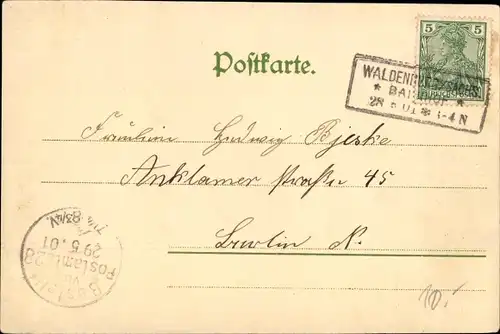 Postkarte.
5 5
WALDENBURG
* BAHNHOF *
28 5 01 * 3-4 N
Fräulein Hedwig Bjeske
Anklamer straße 45
Berlin N.
Postamt 28
29.5.01
10.-